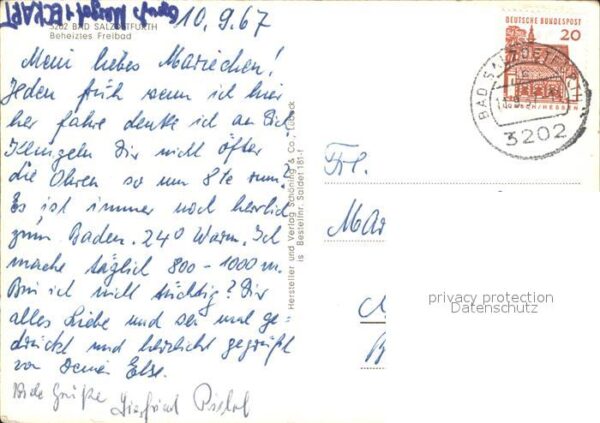 10.9.67
3202 BAD SALZDETFURTH
Beheiztes Freibad
Mein liebes Mariechen!
Jeden früh wenn ich hier
her fahre denke ich an Dich
Klingeln Dir nicht öfter
die Ohren so um 8te rum?
Es ist immer noch herrlich
zum Baden. 24° Warm. Ich
mache täglich 800 - 1000 m.
Bin ich nicht tüchtig? Dir
alles Liebe und sei mal ge=
drückt und herzlichst gegrüßt
von Deiner Else.
Viele Grüße
Hersteller und Verlag Schöning & Co., Lübeck
is Bestellnr. Saldet 181-f
DEUTSCHE BUNDESPOST
20
LORSCH/HESSEN
BAD SALZDETFURTH
3202
Frl.
Mar
privacy protection
Datenschutz